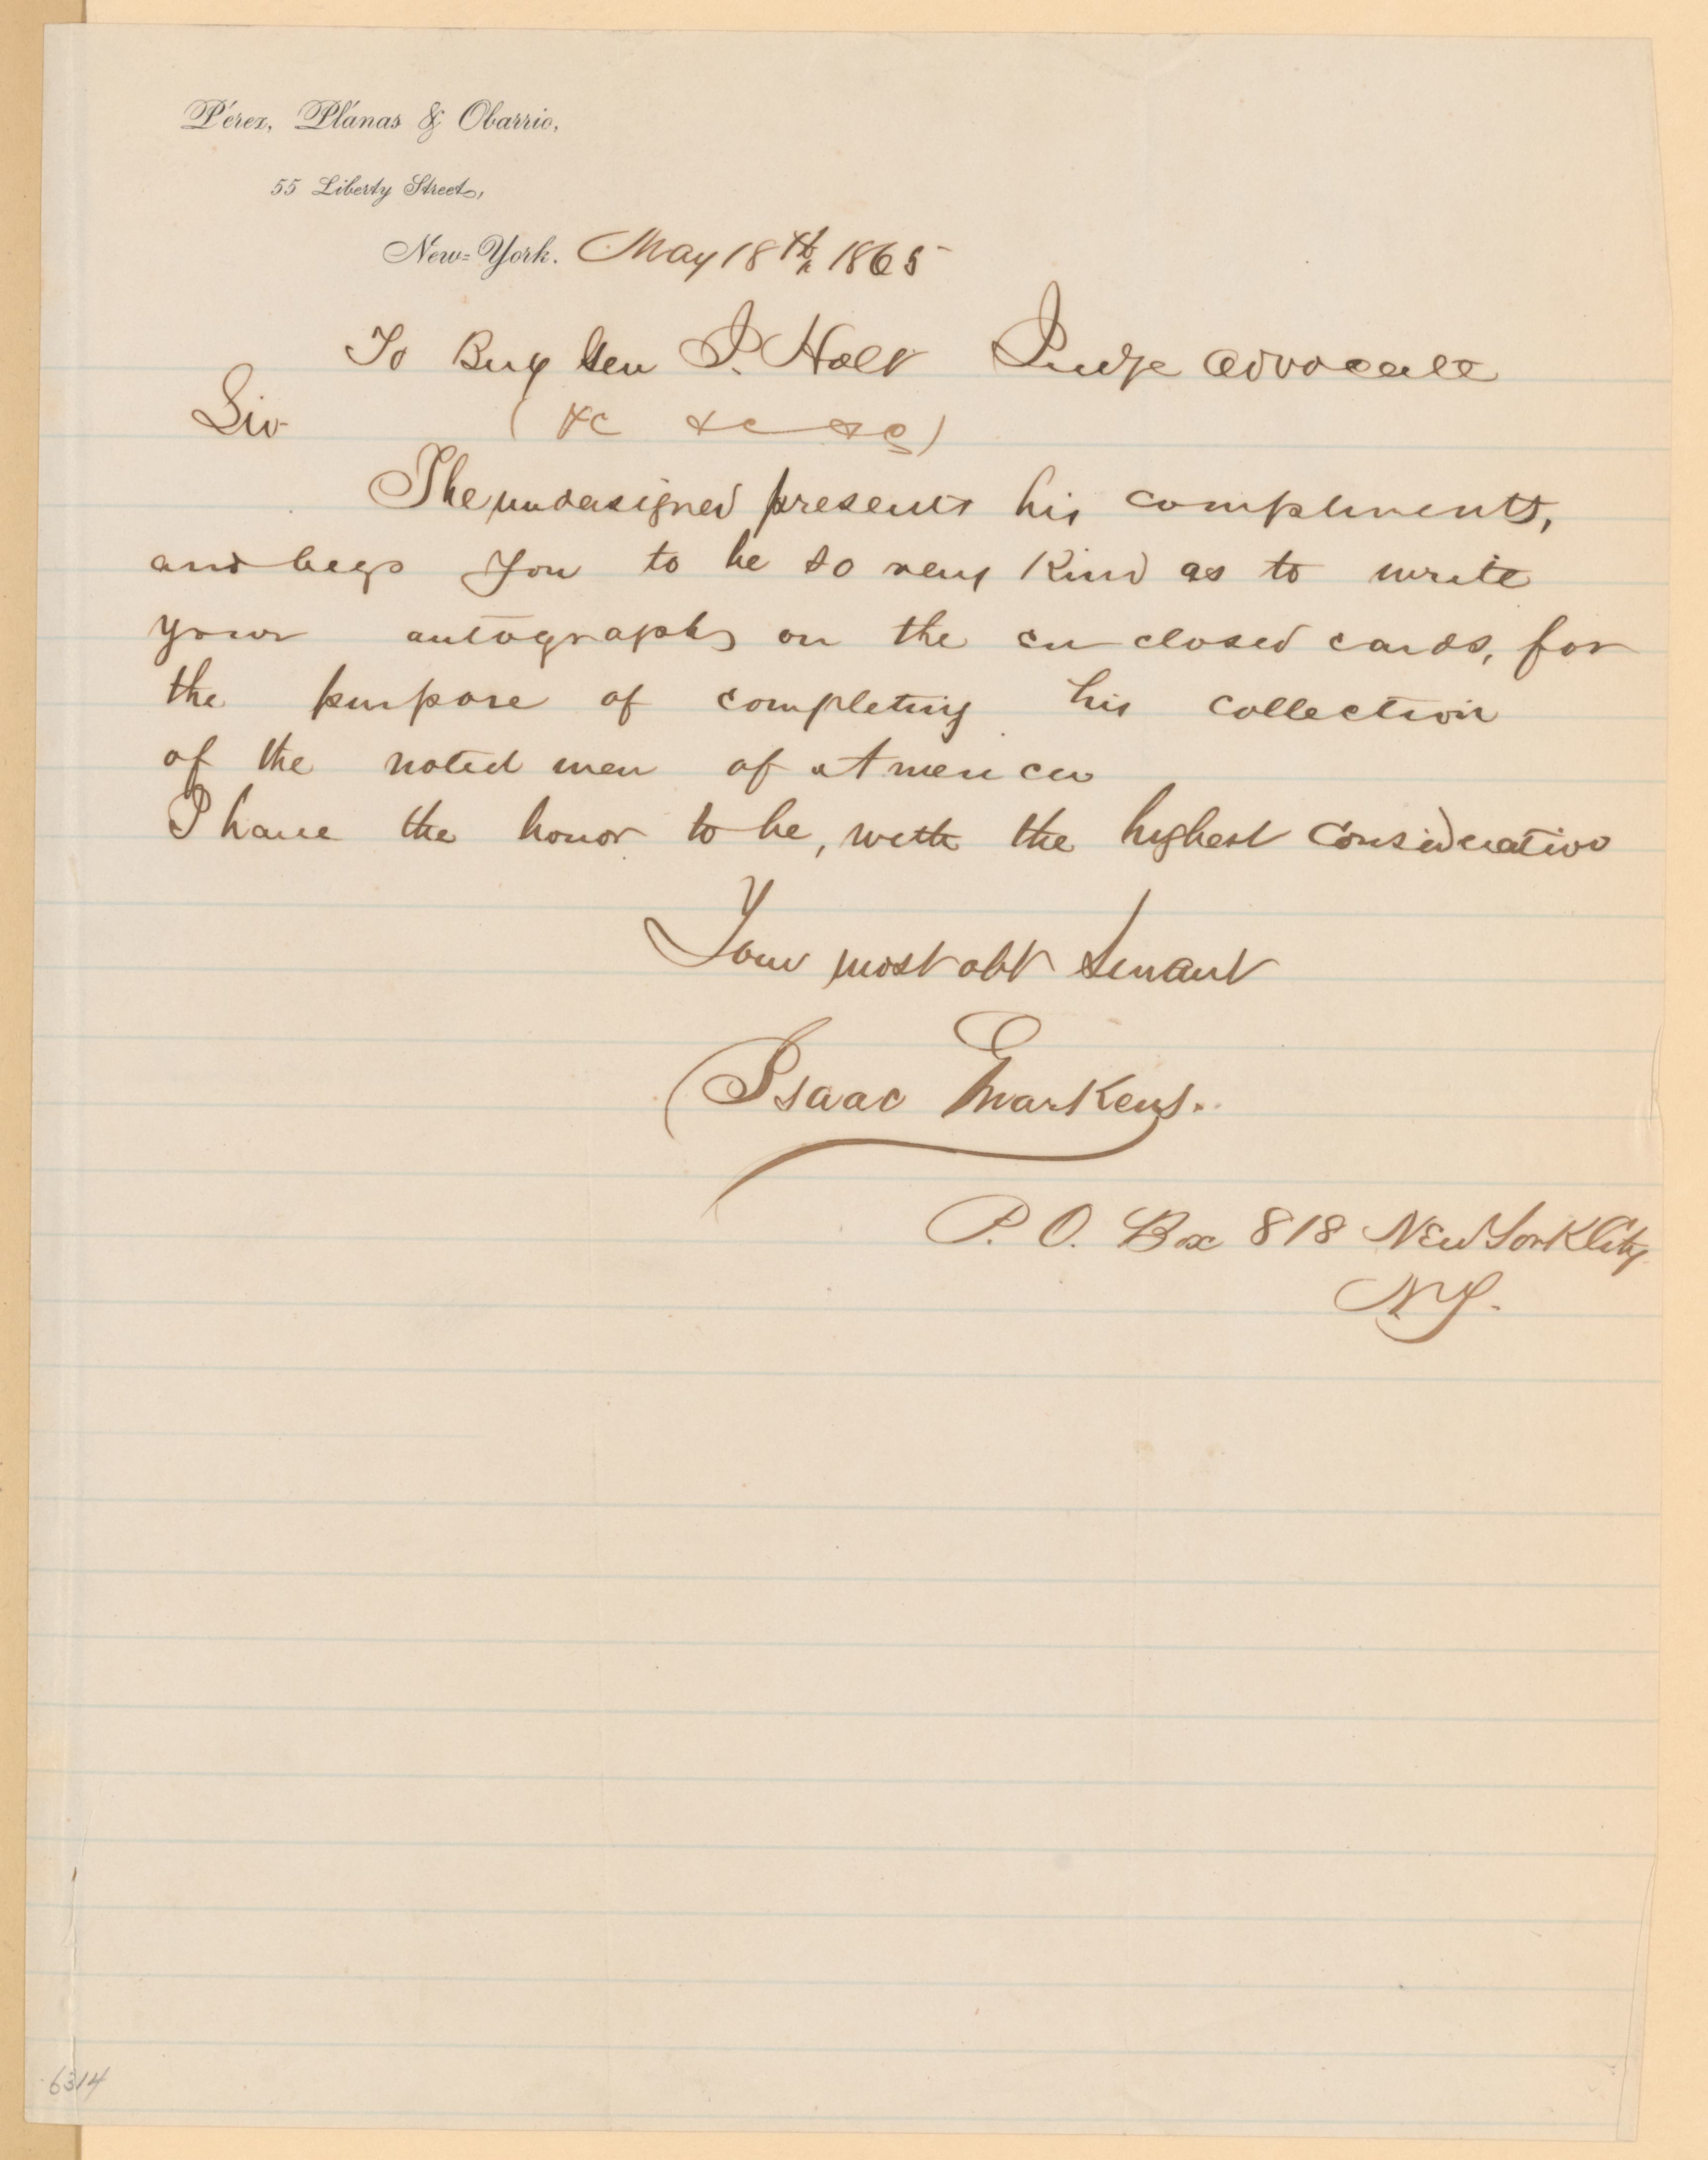 Pérez, Plánas & Obarrio,
55 Liberty Street,
New=York. May 18th 1865
To Brig Gen J. Holt Judge Advocate
Sir (&c &c &c)
The undersigned presents his compliments,
and begs you to be so very kind as to write
your autographs on the enclosed cards, for
the purpose of completing his collection
of the noted men of America
I have the honor to be, with the highest consideration
Your most obt Servant
Isaac Markens.
P. O. Box 818 New York City
NY.
6314